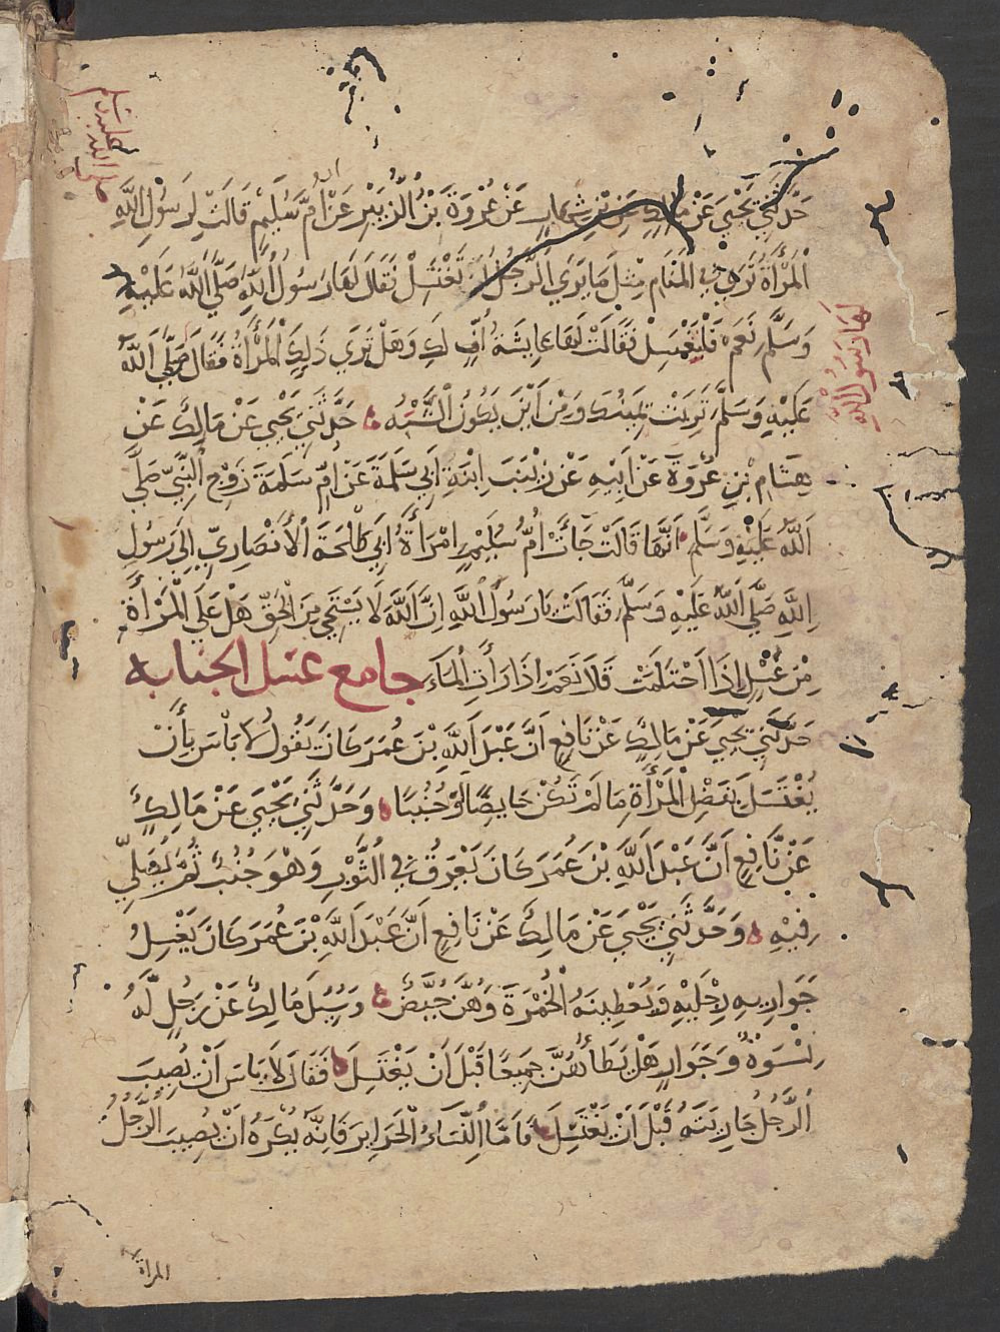 صلى الله عليه وسلم
حَدَّثَنِي يَحْيَى عَنْ مَالِكٍ عَنِ بْنِ شِهَابٍ عَنْ عُرْوَةَ بْنُ الزُّبَيْرِ عَنْ أُمِّ سُلَيْمٍ قَالَتْ لِرَسُولِ اللَّهِ
الْمَرْأَةُ تَرَى فِي الْمَنَامِ مِثْلَ مَا يَرَى الرَّجُلُ تَغْتَسِلُ فَقَالَ لَهَا رَسُولُ اللَّهِ صَلَّى اللَّهُ عَلَيْهِ
وَسَلَّمَ نَعَمْ فَلْتَغْتَسِلْ فَقَالَتْ لَهَا عَايِشَةُ أُفٍّ لَكِ وَهَلْ تَرَى ذَلِكَ الْمَرْأَةُ فَقَالَ صَلَّى اللَّهُ
لها رسول الله
عَلَيْهِ وَسَلَّمَ تَرِبَتْ يَمِينُكِ وَمِنْ أَيْنَ يَكُونُ الشَّبَهُ ه حَدَّثَنِي يَحْيَى عَنْ مَالِكٍ عَنْ
هِشَامِ بْنِ عُرْوَةَ عَنْ أَبِيهِ عَنْ زَيْنَبَ ابْنَةِ أَبِي سَلَمَةَ عَنْ أُمِّ سَلَمَةَ زَوْجِ النَّبِيِّ صَلَّى
اللَّهُ عَلَيْهِ وَسَلَّمَ أَنَّهَا قَالَتْ جَاءَتْ أُمُّ سُلَيْمٍ امْرَأَةُ أَبِي طَلْحَةَ الْأَنْصَارِيِّ إِلَى رَسُولِ
اللَّهِ صَلَّى اللَّهُ عَلَيْهِ وَسَلَّمَ فَقَالَتْ يَا رَسُولَ اللَّهِ إِنَّ اللَّهَ لَا يَسْتَحْيِي مِنَ الْحَقِّ هَلْ عَلَى الْمَرْأَةِ
مِنْ غُسْلٍ إِذَا احْتَلَمَتْ قَالَ نَعَمْ إِذَا رَأَتِ الْمَاءَ جامع غسل الجنابه
حَدَّثَنِي يَحْيَى عَنْ مَالِكٍ عَنْ نَافِعٍ أَنَّ عَبْدَ اللَّهِ بْنَ عُمَرَ كَانَ يَقُولُ لَا بَأْسَ بِأَنْ
يُغْتَسَلَ بِفَضْلِ الْمَرْأَةِ مَا لَمْ تَكُنْ حَايِضًا أَوْ جُنُبًا ه وَحَدَّثَنِي يَحْيَى عَنْ مَالِكٍ
عَنْ نَافِعٍ أَنَّ عَبْدَ اللَّهِ بْنَ عُمَرَ كَانَ يَعْرَقُ فِي الثَّوْبِ وَهُوَ جُنُبٌ ثُمَّ يُصَلِّي
فِيهِ ه وَحَدَّثَنِي يَحْيَى عَنْ مَالِكٍ عَنْ نَافِعٍ أَنَّ عَبْدَ اللَّهِ بْنَ عُمَرَ كَانَ يَغْسِلُ
جَوَارِيهِ رِجْلَيْهِ وَيُعْطِينَهُ الْخُمْرَةَ وَهُنَّ حُيَّضٌ ه وَسُيِلَ مَالِكٌ عَنْ رَجُلٍ لَهُ
نِسْوَةٌ وَجَوَارٍ هَلْ يَطَأُهُنَّ جَمِيعًا قَبْلَ أَنْ يَغْتَسِلَ ه فَقَالَ لَا بَاسَ أَنْ يُصِيبَ
الرَّجُلُ جَارِيَتَهُ قَبْلَ أَنْ يَغْتَسِلَ فَأَمَّا النِّسَاءُ الْحَرَايِرُ فَإِنَّهُ يُكْرَهُ أَنْ يُصِيبَ الرَّجُلُ
المراة